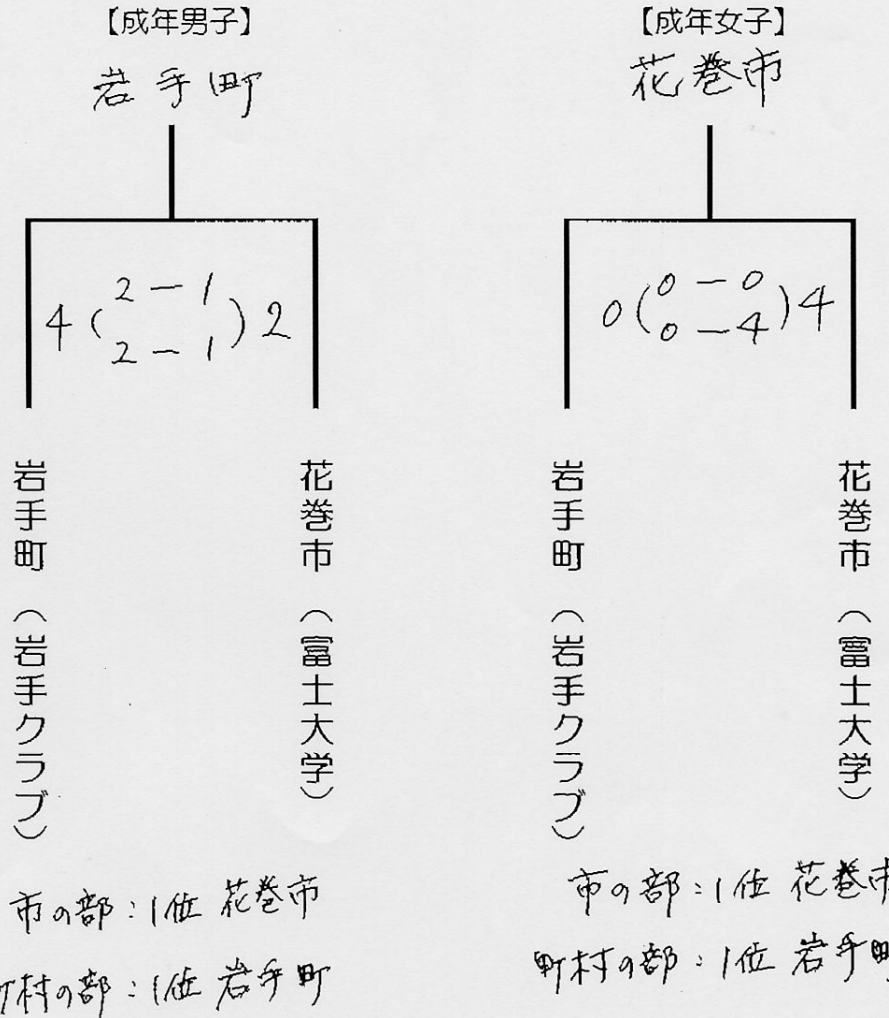 【成年男子】
岩手町
4 ( 2 - 1
2 - 1 ) 2
岩手町（岩手クラブ）
花巻市（富士大学）
市の部：1位 花巻市
町村の部：1位 岩手町
【成年女子】
花巻市
0 ( 0 - 0
0 - 4 ) 4
岩手町（岩手クラブ）
花巻市（富士大学）
市の部：1位 花巻市
町村の部：1位 岩手町